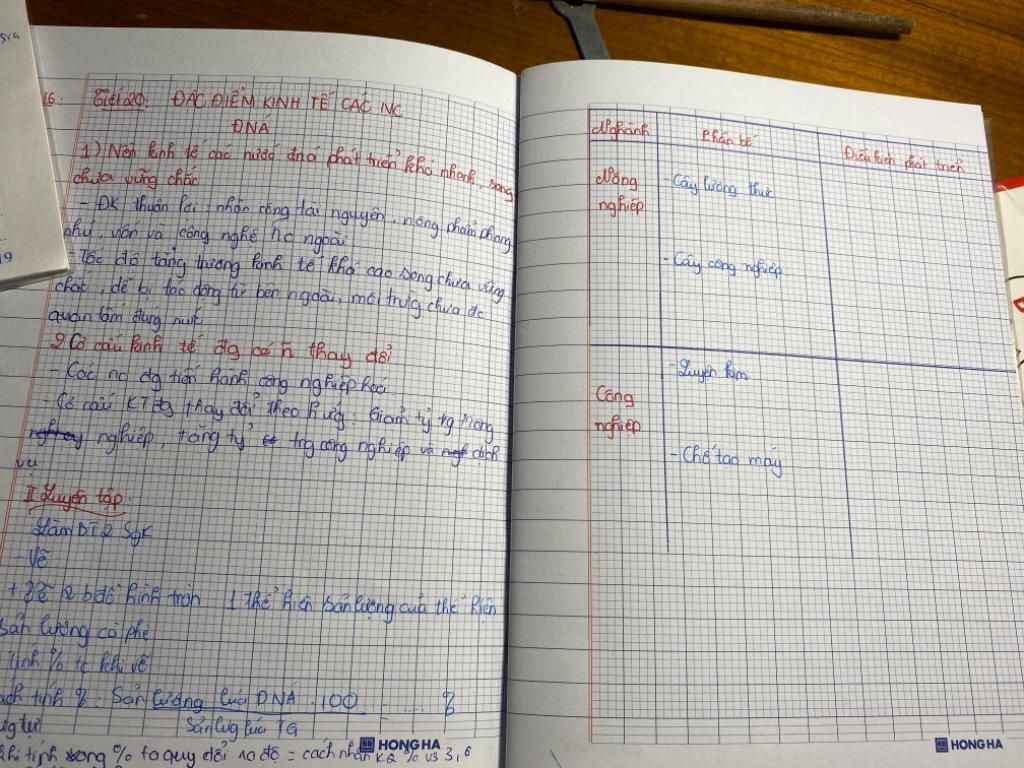 16: Tiết 20: ĐẶC ĐIỂM KINH TẾ CÁC NC
ĐNÁ
1) Nền kinh tế các nước đná phát triển khá nhanh, song
chưa vững chắc
- ĐK thuận lợi: nhân công tài nguyên, nông phẩm phong
phú, vốn và công nghệ nc ngoài
- Tốc độ tăng trưởng kinh tế khá cao song chưa vững
chắc, dễ bị tác động từ bên ngoài, môi trưg chưa đc
quan tâm đúng mức
2 Cơ cấu kinh tế đg có n thay đổi
- Các nc đg tiến hành công nghiệp hoá
- Cơ cấu KT đg thay đổi theo hướg: Giảm tỷ trg nong
nghiệp, tăng tỷ trg công nghiệp và dịch
vụ
II Luyện tập:
Làm BT2 SgK
- Vẽ
+ Vẽ 2 bđồ hình tròn 1 thể hiện sản lượng của thể hiện
sản lượng cà phê
Tính % tc khi vẽ
ách tính %: Sản lượng lúa ĐNÁ . 100 = .... %
Sản lưg lúa TG
khi tính xong % ta quy đổi ra độ = cách nhân KQ % vs 3,6
HONG HA
Nghành
Phân bố
Điều kiện phát triển
Nông
nghiệp
- Cây lương thực
- Cây công nghiệp
Công
nghiệp
- Luyện kim
- Chế tạo máy
HONG HA